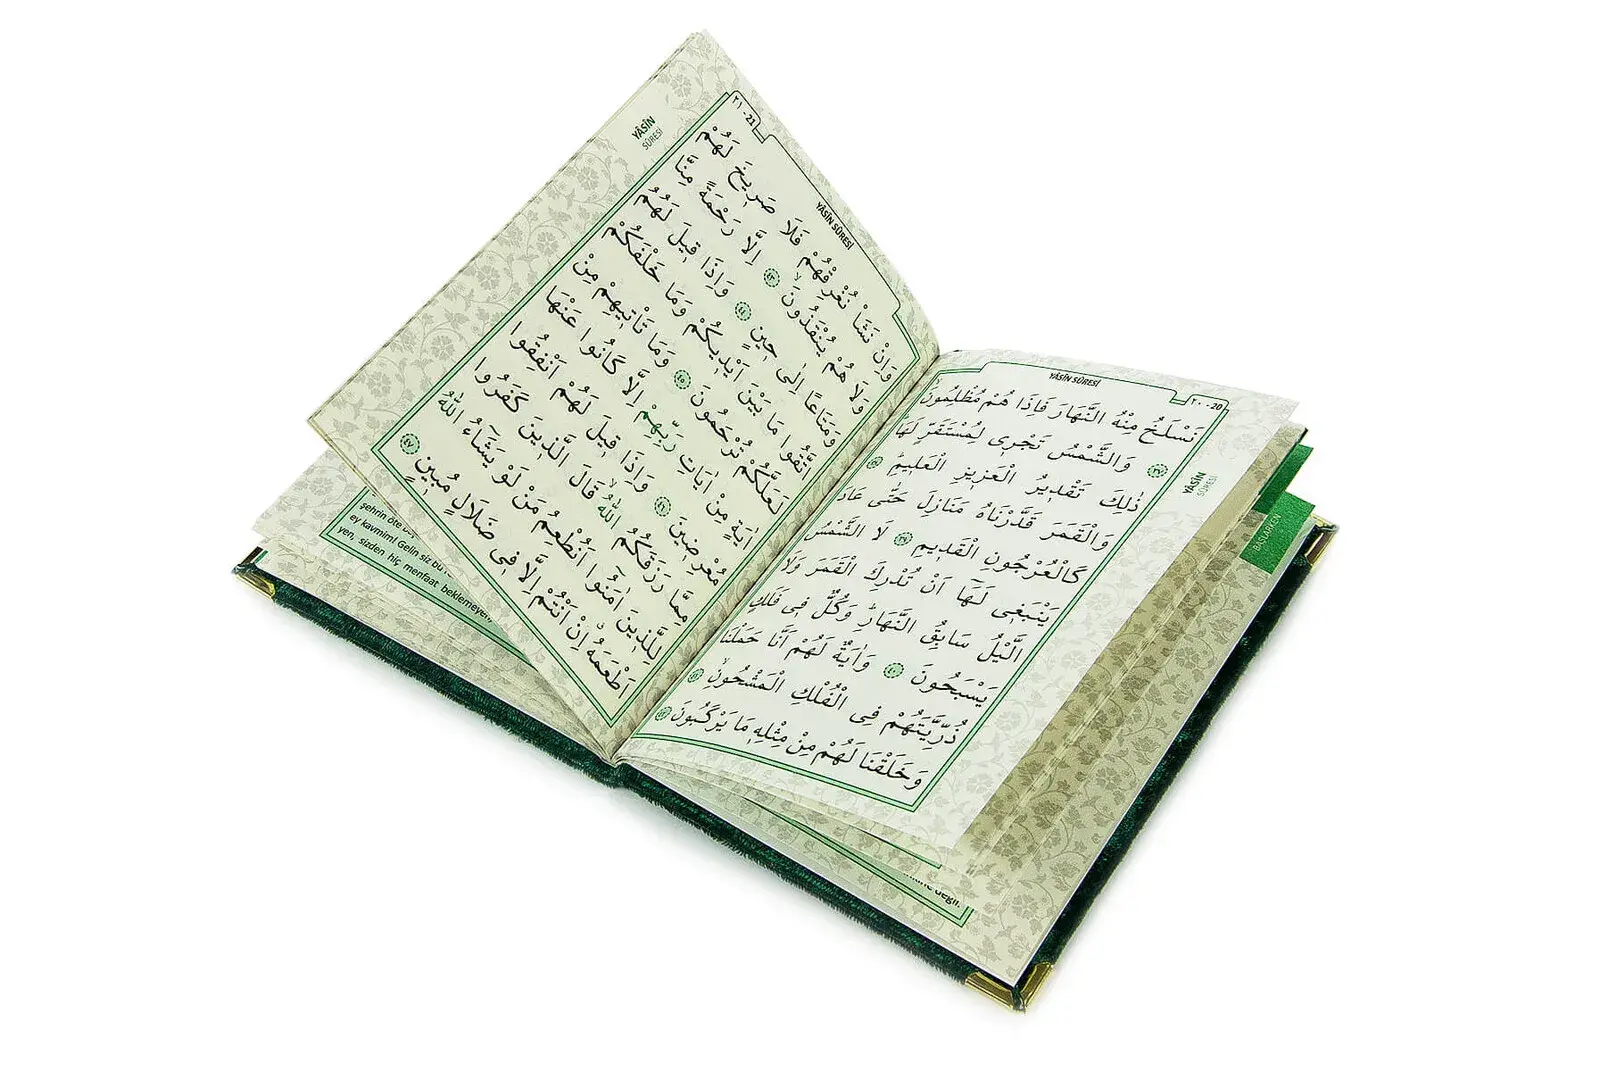 YÂSİN SÛRESİ
٢٠ - 20
YÂSÎN
SÛRESİ
نَسْلَخُ مِنْهُ النَّهَارَ فَاِذَا هُمْ مُظْلِمُونَۙ
﴿٣٧﴾ وَالشَّمْسُ تَجْرِى لِمُسْتَقَرٍّ لَهَاۜ
ذٰلِكَ تَقْدِيرُ الْعَزِيزِ الْعَلِيمِۜ ﴿٣٨﴾
وَالْقَمَرَ قَدَّرْنَاهُ مَنَازِلَ حَتّٰى عَادَ
كَالْعُرْجُونِ الْقَدِيمِ ﴿٣٩﴾ لَا الشَّمْسُ
يَنْبَغِى لَهَٓا اَنْ تُدْرِكَ الْقَمَرَ وَلَا
الَّيْلُ سَابِقُ النَّهَارِۜ وَكُلٌّ فِى فَلَكٍ
يَسْبَحُونَ ﴿٤٠﴾ وَاٰيَةٌ لَهُمْ اَنَّا حَمَلْنَا
ذُرِّيَّتَهُمْ فِى الْفُلْكِ الْمَشْحُونِۙ ﴿٤١﴾
وَخَلَقْنَا لَهُمْ مِنْ مِثْلِهٖ مَا يَرْكَبُونَ ﴿٤٢﴾
YÂSÎN SÛRESİ
٢١ - 21
YÂSÎN
SÛRESİ
وَاِنْ نَشَأْ نُغْرِقْهُمْ فَلَا صَرِيخَ لَهُمْ
وَلَا هُمْ يُنْقَذُونَۙ ﴿٤٣﴾ اِلَّا رَحْمَةً مِنَّا
وَمَتَاعًا اِلٰى حِينٍ ﴿٤٤﴾ وَاِذَا قِيلَ لَهُمُ
اتَّقُوا مَا بَيْنَ اَيْدِيكُمْ وَمَا خَلْفَكُمْ
لَعَلَّكُمْ تُرْحَمُونَ ﴿٤٥﴾ وَمَا تَأْتِيهِمْ مِنْ
اٰيَةٍ مِنْ اٰيَاتِ رَبِّهِمْ اِلَّا كَانُوا عَنْهَا
مُعْرِضِينَ ﴿٤٦﴾ وَاِذَا قِيلَ لَهُمْ اَنْفِقُوا
مِمَّا رَزَقَكُمُ اللّٰهُۙ قَالَ الَّذِينَ كَفَرُوا
لِلَّذِينَ اٰمَنُٓوا اَنُطْعِمُ مَنْ لَوْ يَشَٓاءُ اللّٰهُ
اَطْعَمَهُۗ اِنْ اَنْتُمْ اِلَّا فِى ضَلَالٍ مُبِينٍ ﴿٤٧﴾
şehrin öte
ey kavmim! Gelin siz bu
yen, sizden hiç menfaat beklemeyen,
değil.